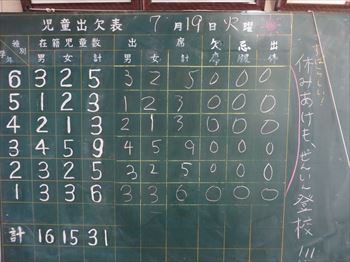 児童出欠表 7月19日火曜
学年 種別 在籍児童数 出席 欠席 忌服 出停
男 女 計 男 女 計
6 3 2 5 3 2 5 0 0 0
5 1 2 3 1 2 3 0 0 0
4 2 1 3 2 1 3 0 0 0
3 4 5 9 4 5 9 0 0 0
2 3 2 5 3 2 5 0 0 0
1 3 3 6 3 3 6 0 0 0
計 16 15 31
すばらしい!
休みあけも、ぜんいん登校!!!